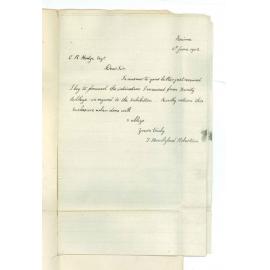 6th June 1902
C. R. Hodge Esqr
Dear Sir
In answer to your letter just received
I beg to forward the intimation I received from Trinity
College in regard to the exhibition. Kindly return this
enclosure when done with
& oblige
Yours truly
J. Robertson